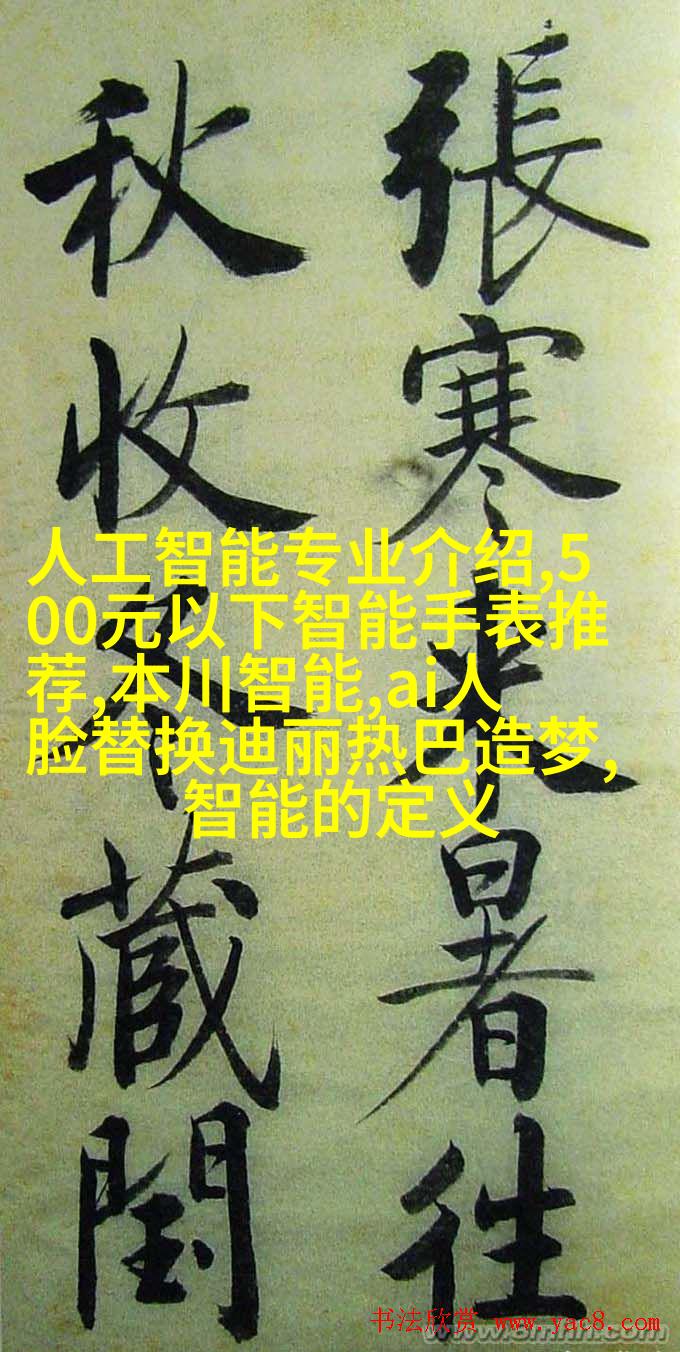 張寒来暑往
秋收冬蔵閏
人工智能专业介绍,5
00元以下智能手表推
荐,本川智能,ai人
脸替换迪丽热巴造梦,
智能的定义
书法欣赏 www.yac8.com